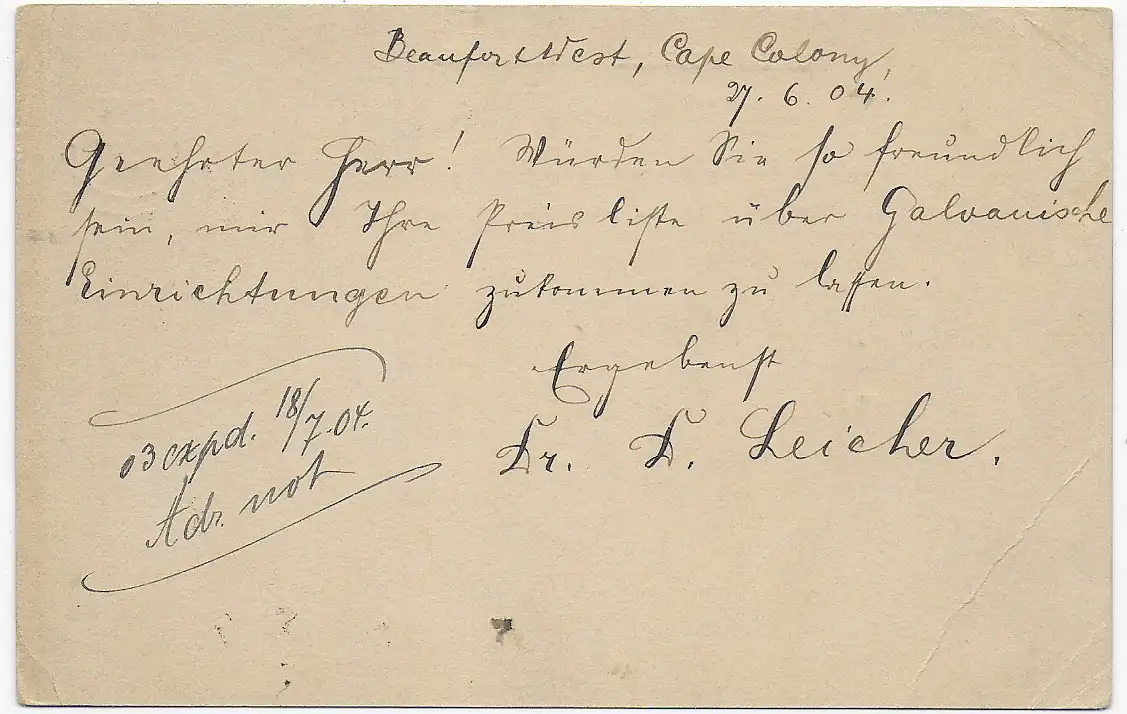 Beaufort West, Cape Colony,
27. 6. 04.
Geehrter Herr! Würden Sie so freundlich
sein, mir Ihre Preisliste über Galvanische
Einrichtungen zukommen zu lassen.
Ergebenst
Dr. D. Leicher.
expd. 18/7.04.
Adr. not